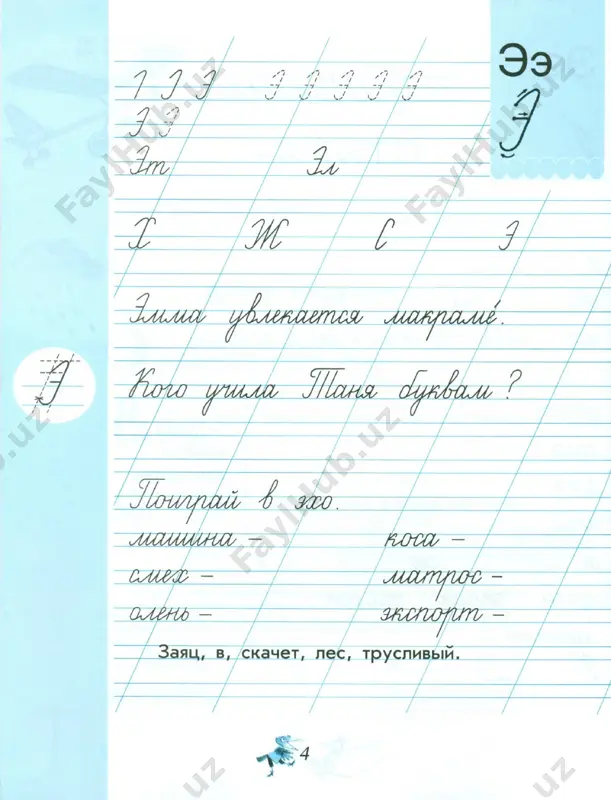 Ээ
Э
1 Э Э Э Э Э Э Э
Э Э
Эт Эл
Х Ж С Э
Эмма увлекается макраме́.
Кого учила Таня буквам?
Э
Поиграй в эхо.
машина – коса –
смех – матрос –
олень – экспорт –
Заяц, в, скачет, лес, трусливый.
4
FaylHub.uz
FaylHub.uz
FaylHub.uz
FaylHub.uz
uz
uz
uz